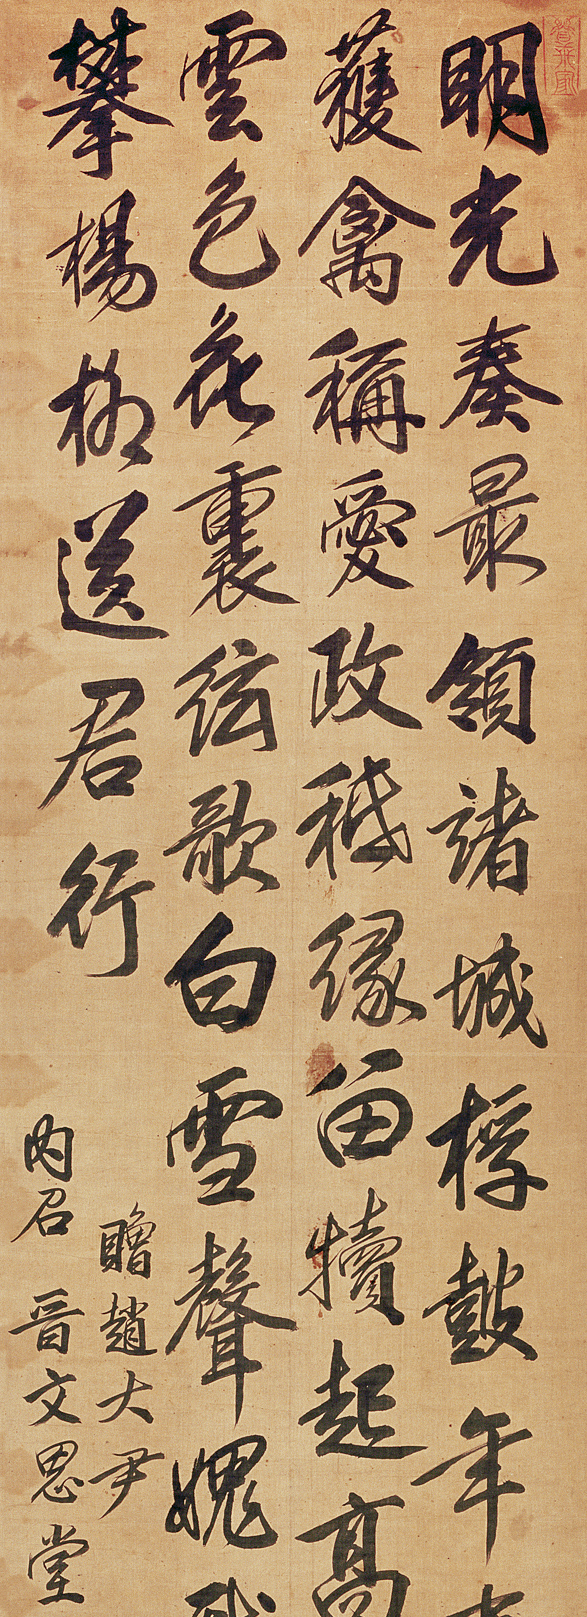 明光奏最領諸城桴鼓年
獲禽稱愛政秪緣留犢起高
雲色花裏絃歌白雪聲媿
攀楊柳送君行
贈趙大尹
內召 晋文思堂